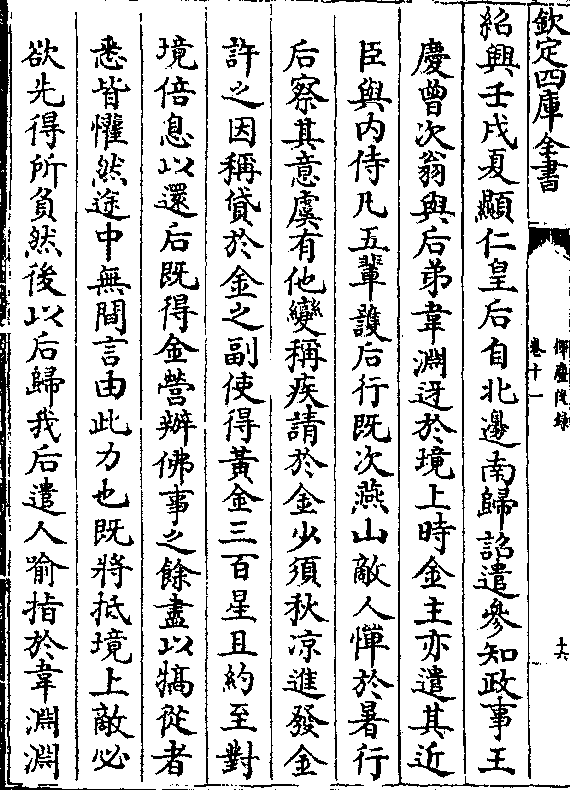 欽定四庫全書
揮麈後錄
卷十一
十六
紹興壬戌夏顯仁皇后自北邊南歸詔遣參知政事王
慶曾次翁與后弟韋淵迓於境上時金主亦遣其近
臣與内侍凡五輩護后行既次燕山敵人憚於暑行
后察其意虞有他變稱疾請於金少須秋凉進發金
許之因稱貸於金之副使得黃金三百星且約至對
境倍息以還后既得金營辦佛事之餘盡以犒從者
悉皆懽然途中無間言由此力也既將抵境上敵必
欲先得所負然後以后歸我后遣人喻指於韋淵淵